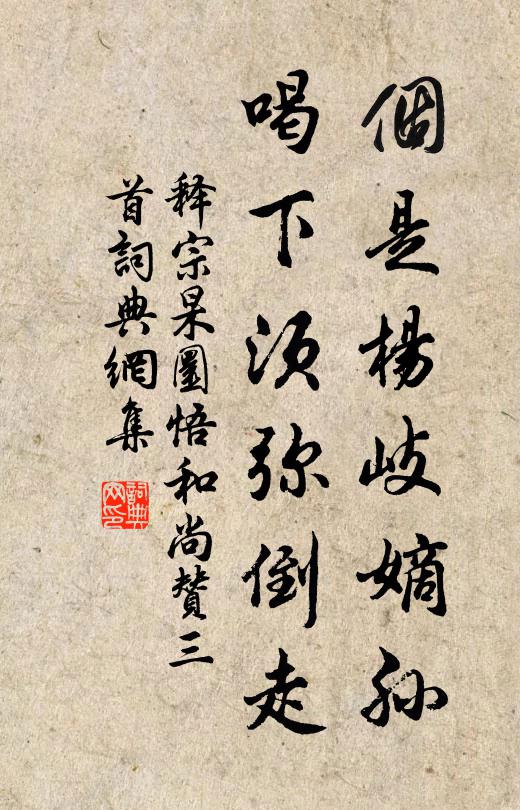 個是楊岐嫡孫
喝下須弥倒走
释宗杲圜悟和尚賛三
首詞典網集
詞典
网印